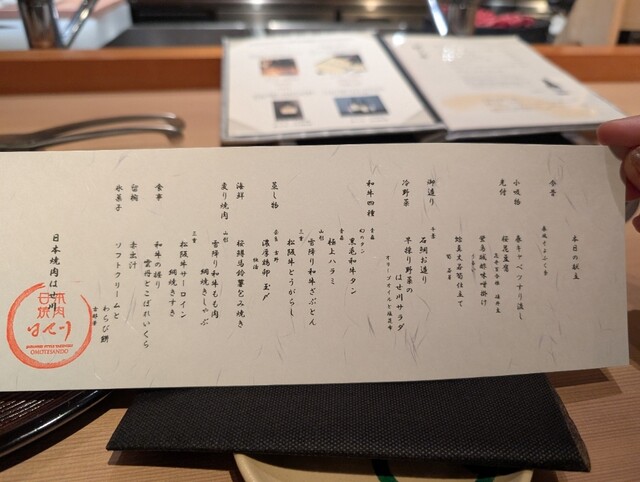 本日の献立
食前
小吸物
春キャベツすり流し
先付
桜志豆腐
蛍烏賊酢味噌掛け
御造り
石鯛お造り
冷野菜
早採り野菜の
はせ川サラダ
和牛四種
幻のタン
黒毛和牛タン
極上ハラミ
山形
雪降り和牛ざぶとん
三重
松阪牛とうがらし
蒸し物
濃厚鶏卵 玉〆
海鮮
桜鱒馬鈴薯包み焼き
炙り焼肉
山形
雪降り和牛もも肉
網焼きしゃぶ
三重
松阪牛サーロイン
網焼きすき
食事
和牛の握り
雲丹とこぼれいくら
留椀
赤出汁
氷菓子
ソフトクリームと
わらび餅
日本焼肉はせ川
日本焼肉
はせ川
OMOTESANDO